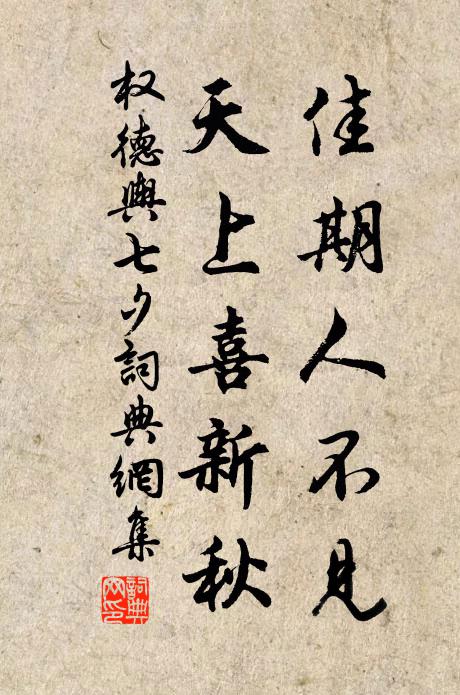 佳期人不见
天上喜新秋
权德舆七夕词典網集
詞典网印